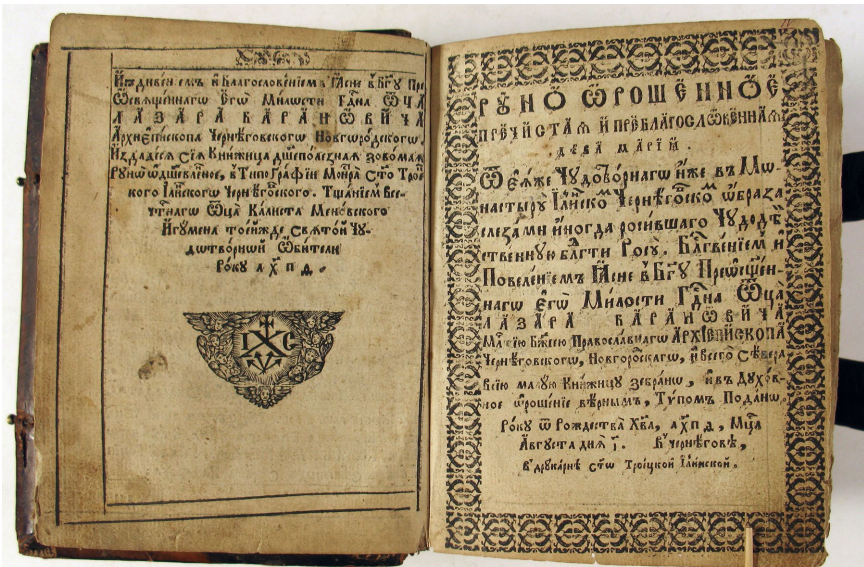 Иждивенїемъ и Благословенїемъ Ꙗсне в Бг҃у Пре
Ѿсвѧщеннагѡ Егѡ Милости Гдⷭ҇на Ѿца
ЛАЗАРА БАРАНѠВИЧА
Архиепископа Чернѣговскогѡ Новгородскогѡ,
Издадесѧ сїѧ Книжица дш҃еполезнаѧ зовомаѧ
Руно ѡдш҃евленое, в Типографїие Монⷭ҇рѧ Ст҃ѡ Трой
кого Ілїинского Чернѣгѡвского. Тщанїем Все-
чт҃нагѡ Ѿца Калиста Меновского
Игумена тоейжде Свѧтой Чу-
дѡтворной Ѡбители
Року ахп
ІХС
РУНО ѠРОШЕННОЕ
ПРЕЧИСТАѦ И ПРЕБЛАГОСЛѠВЕННАѦ
ДЕВА МАРІѦ.
Ѿ Еѧже Чудотворнагѡ иже въ Мо-
настыру Ілїинскоⷨ Чернѣгѡвскоⷨ ѡбраза
слезами иногда росившаго Чудодѣ-
ственную блг҃ти Росу. Блг҃венїем и
Повеленїемъ Ꙗсне в Бг҃у Преѡсщ҃ен-
нагѡ Егѡ Милости Гдⷭ҇на Ѿца
ЛАЗАРА БАРАНѠВИЧА
Млⷭ҇тїю Бж҃еею Православнагѡ Архїепископа
Чернѣговскогѡ, Новгороскагѡ, и всегѡ Сѣвера
Всїю малую Книжицу зебранѡ, и въ Духов-
ное ѡрошенїе вѣрнымъ, Тѵпомъ Поданѡ.
Року ѿ Рождества Хв҃а, ахп, Мцⷭ҇а
Августа днѧ. В Чернѣговѣ,
В друкарнѣ ст҃ѡ Троіцкой Ілїинской.